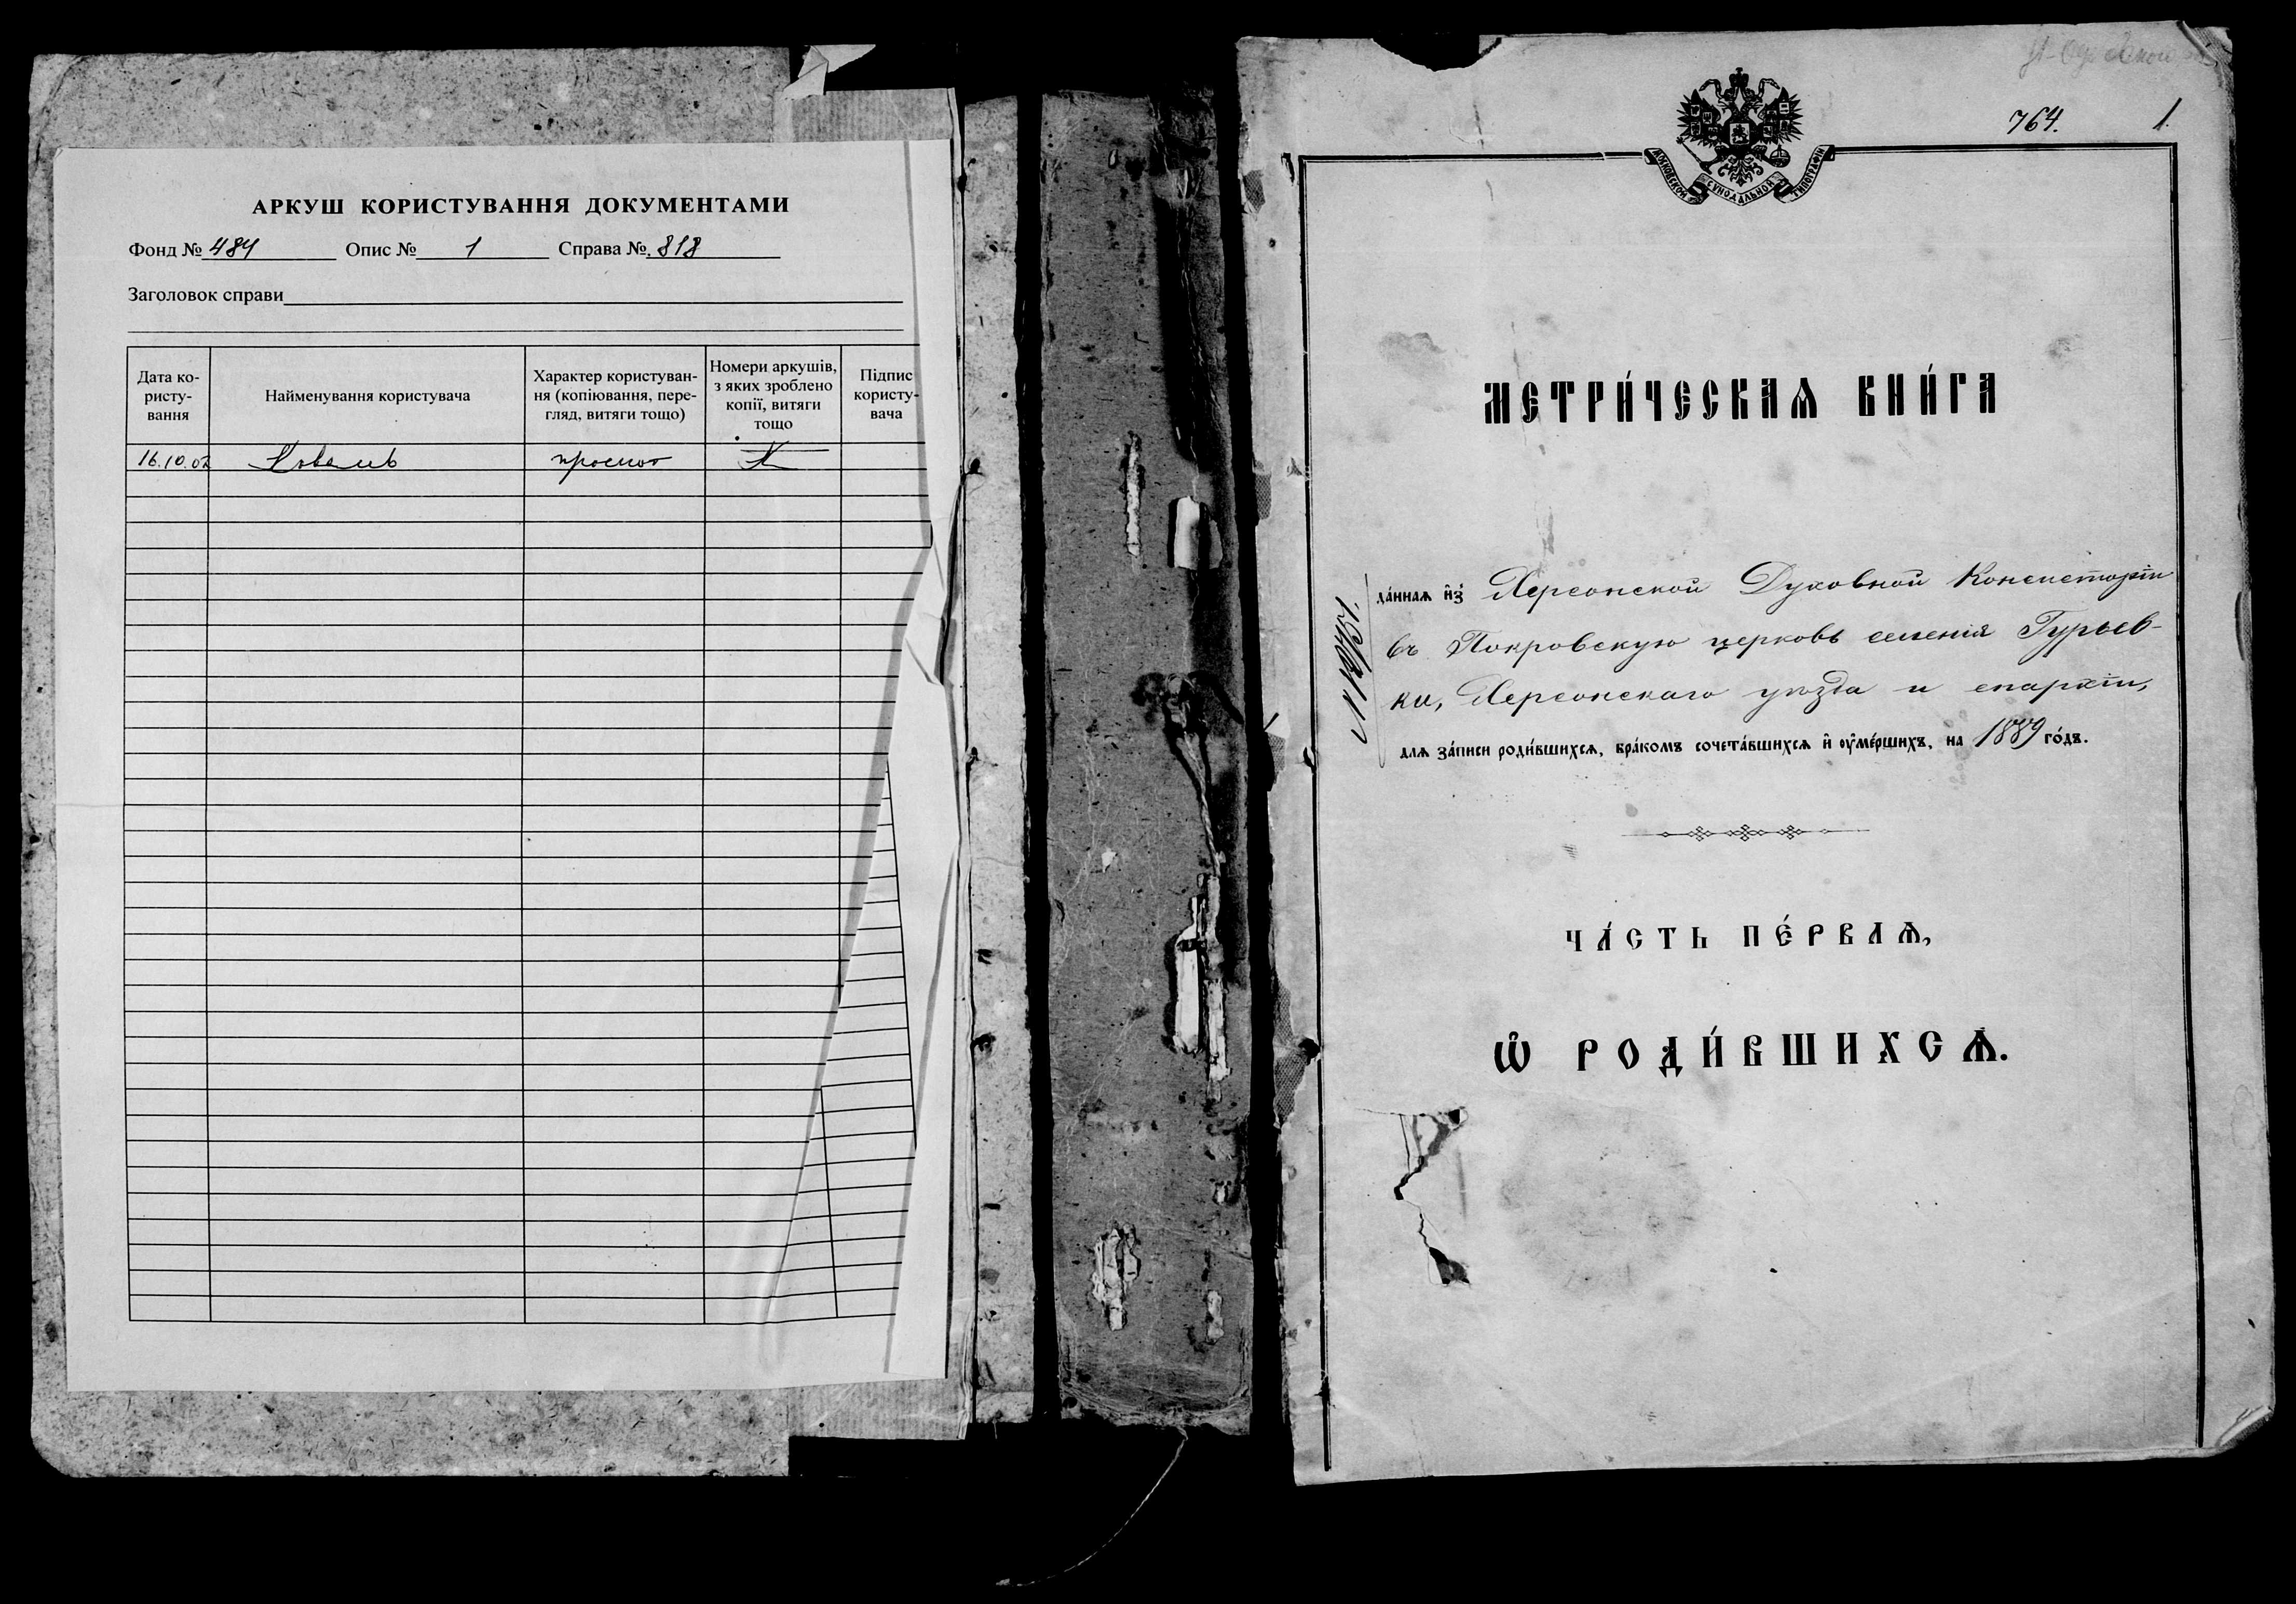 АРКУШ КОРИСТУВАННЯ ДОКУМЕНТАМИ
Фонд № 484 Опис № 1 Справа № 818
Заголовок справи
Дата ко-
ристу-
вання
Найменування користувача
Характер користуван-
ня (копіювання, пере-
гляд, витяги тощо)
Номери аркушів,
з яких зроблено
копії, витяги
тощо
Підпис
користу-
вача
16.10.02 Коваль
764. 1.
МОСКОВСКОЙ СѴНОДАЛЬНОЙ ТИПОГРАФІИ
МЕТРИ́ЧЕСКАѦ КНИ́ГА
да́ннаѧ и҆з̾ Херсонской Духовной Консисторіи
въ Покровскую церковь селенія Гурьев-
ки, Херсонскаго уѣзда и епархіи,
длѧ за́писи роди́вшихсѧ, бра́комъ сочета́вшихсѧ и҆ ѹ҆ме́ршихъ, на 1889 го́дъ.
ЧА́СТЬ ПЕ́РВАѦ,
Ѡ҆ РОДИ́ВШИХСѦ.